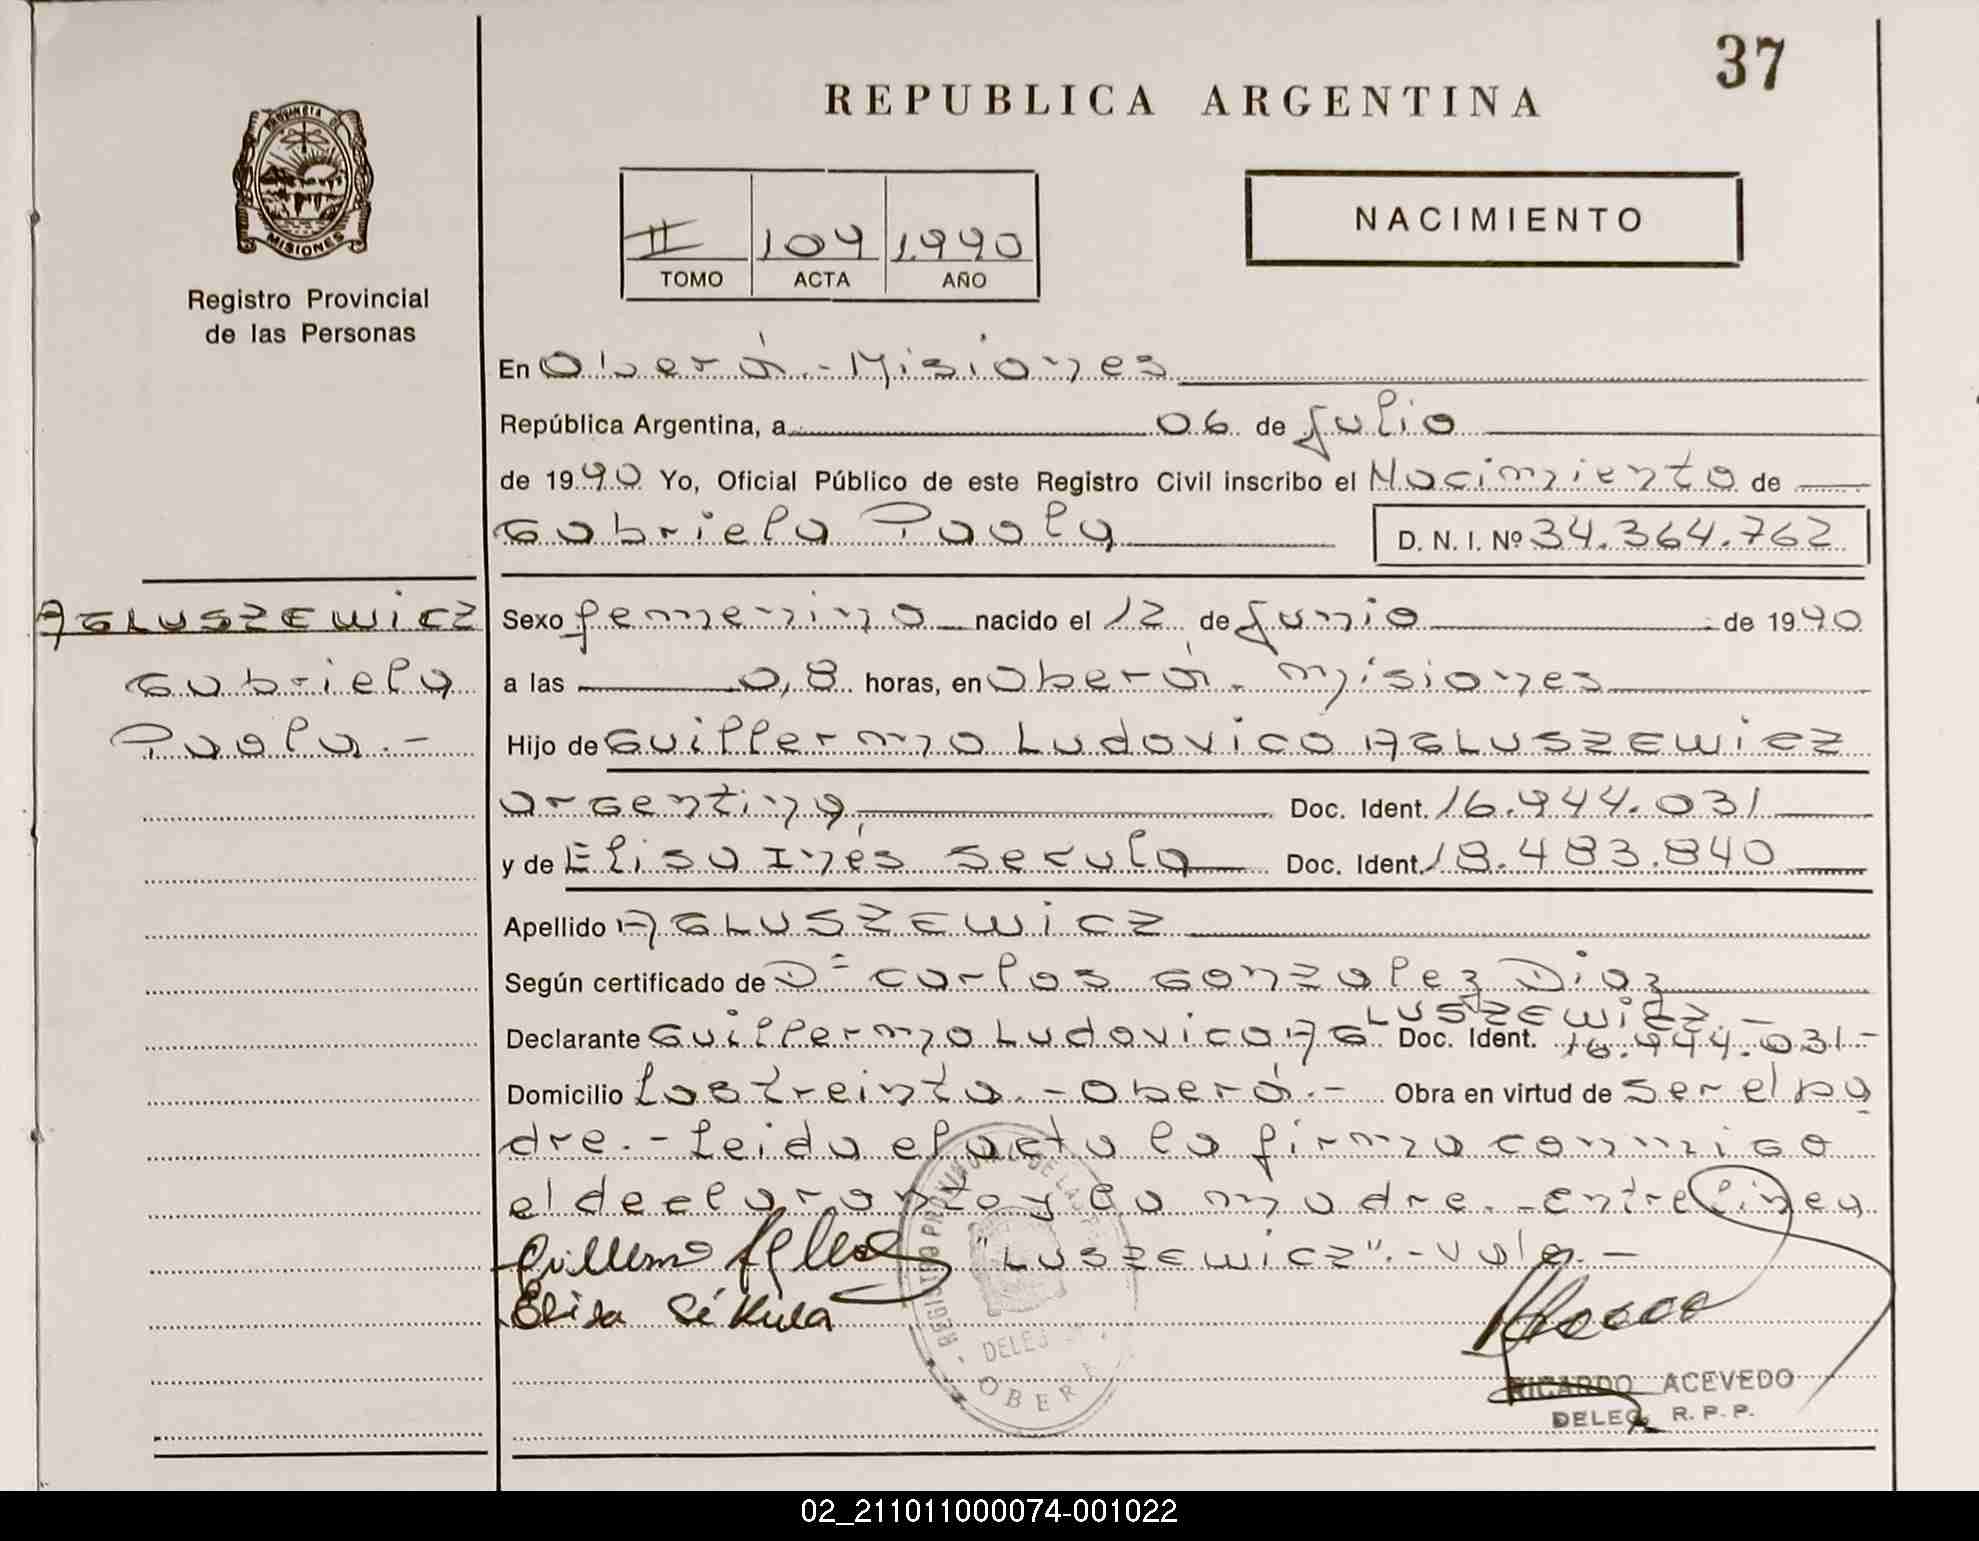 37
REPUBLICA ARGENTINA
PROVINCIA DE
MISIONES
Registro Provincial
de las Personas
II 104 1.990
TOMO ACTA AÑO
NACIMIENTO
En Oberá.- Misiones
República Argentina, a 06 de Julio
de 1990 Yo, Oficial Público de este Registro Civil inscribo el Nacimiento de
Gabriela Paola D. N. I. Nº 34.364.762
AGLUSZEWicz
Gabriela
Paola.-
Sexo femenino nacido el 12 de Junio de 1990
a las 0,8 horas, en Oberá - Misiones
Hijo de Guillermo Ludovico AGLUSZEWicz
argentina, Doc. Ident. 16.944.031
y de Elisa Inés Sekula Doc. Ident. 18.483.840
Apellido AGLUSZEWicz
Según certificado de Dº Carlos Gonzalez Diaz
LUSZEWicz.-
Declarante Guillermo Ludovico AG Doc. Ident. 16.944.031-
Domicilio Los treinta.- Oberá.- Obra en virtud de ser el pa
dre.- Leida el acta la firma conmigo
el declarante y la madre.- Entrelinea
"LUSZEWicz".- Vale.-
Guillermo
Elisa Sékula
REGISTRO PROVINCIAL DE LAS
DELEG
OBERA
RICARDO ACEVEDO
DELEG. R. P. P.
02_211011000074-001022